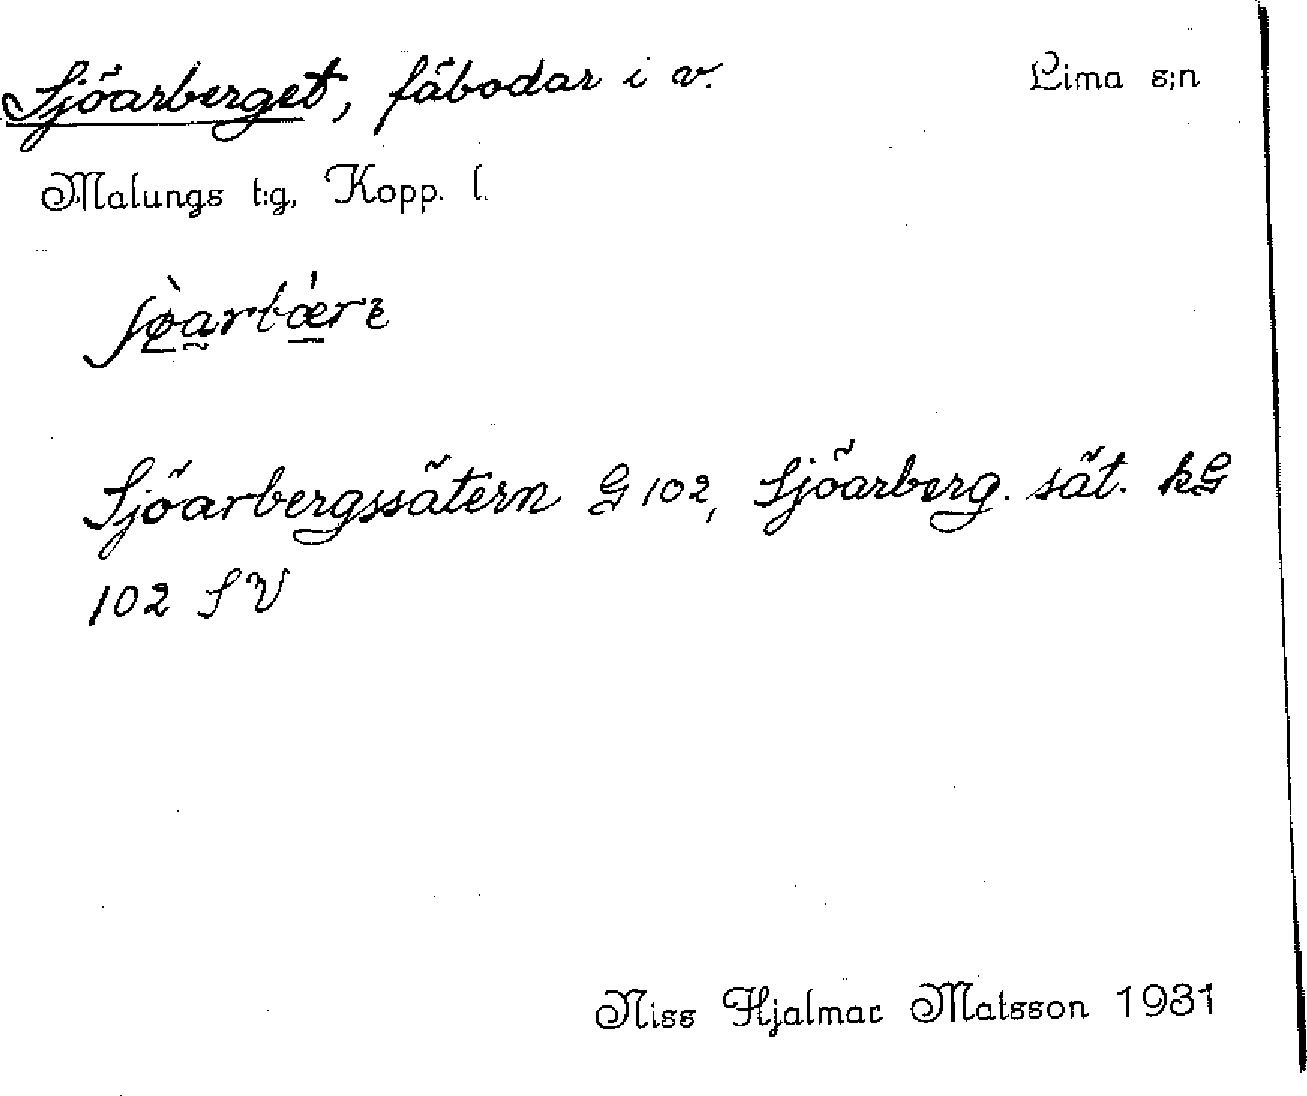 Sjöarberget, fäbodar i v. Lima s:n
Malungs t:g, Kopp. l.
Sjöarbergssätern G 102, Sjöarberg. sät. kG
102 SV
Niss Hjalmar Matsson 1931